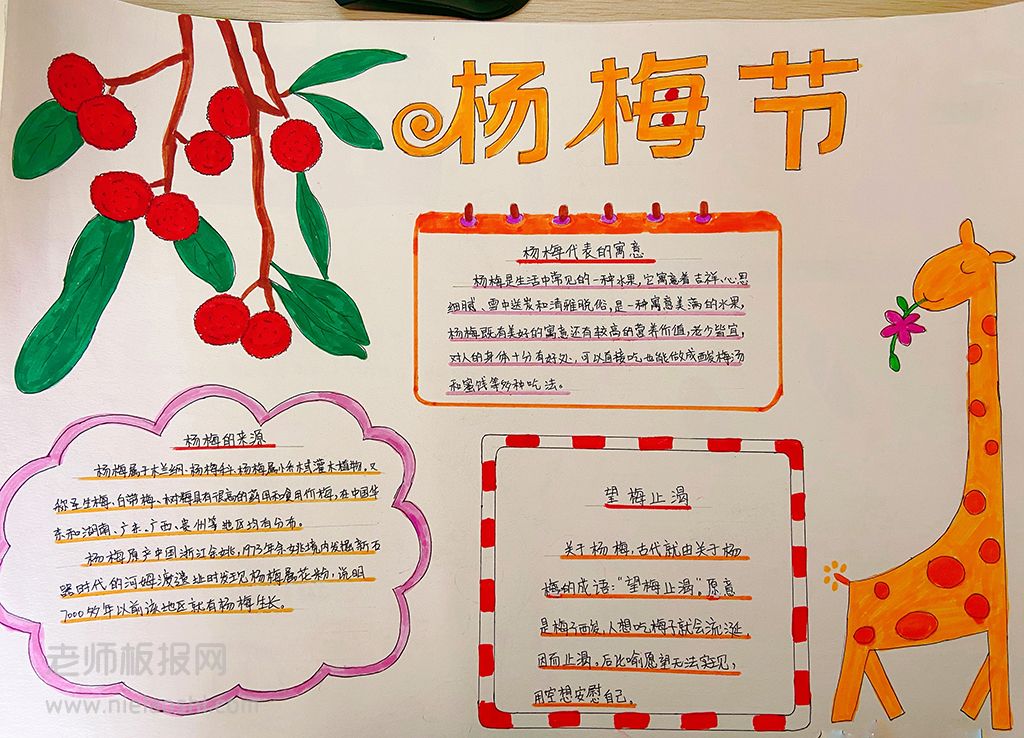 杨梅节
杨梅代表的寓意
杨梅是生活中常见的一种水果,它寓意着吉祥、心思
细腻、雪中送炭和清雅脱俗,是一种寓意美满的水果,
杨梅既有美好的寓意还有较高的营养价值,老少皆宜,
对人的身体十分有好处,可以直接吃也能做成酸梅汤
和蜜饯等多种吃法。
杨梅的来源
杨梅属于木兰纲、杨梅科、杨梅属小乔木或灌木植物。又
称圣生梅、白蒂梅、树梅具有很高的药用和食用价梅,在中国华
东和湖南、广东、广西、贵州等地区均有分布。
杨梅原产中国浙江余姚,1973年余姚境内发掘新石
器时代的河姆渡遗址时发现杨梅属花粉,说明
7000多年以前该地区就有杨梅生长。
望梅止渴
关于杨梅,古代就由关于杨
梅的成语:“望梅止渴”。原意
是梅子酸,人想吃梅子就会流涎
因而止渴,后比喻愿望无法实现,
用空想安慰自己。
老师板报网